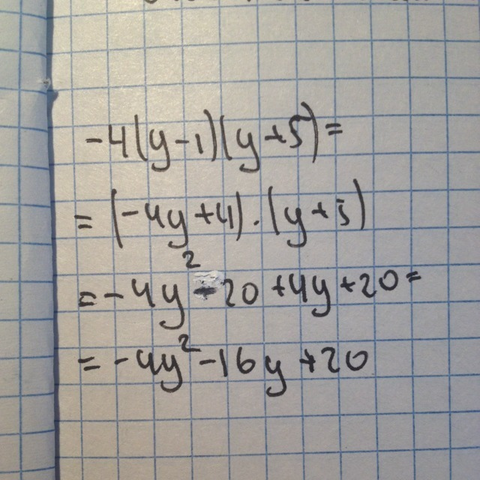 -4(y-1)(y+5)=
=(-4y+4)·(y+5)
=-4y²-20+4y+20=
=-4y²-16y+20